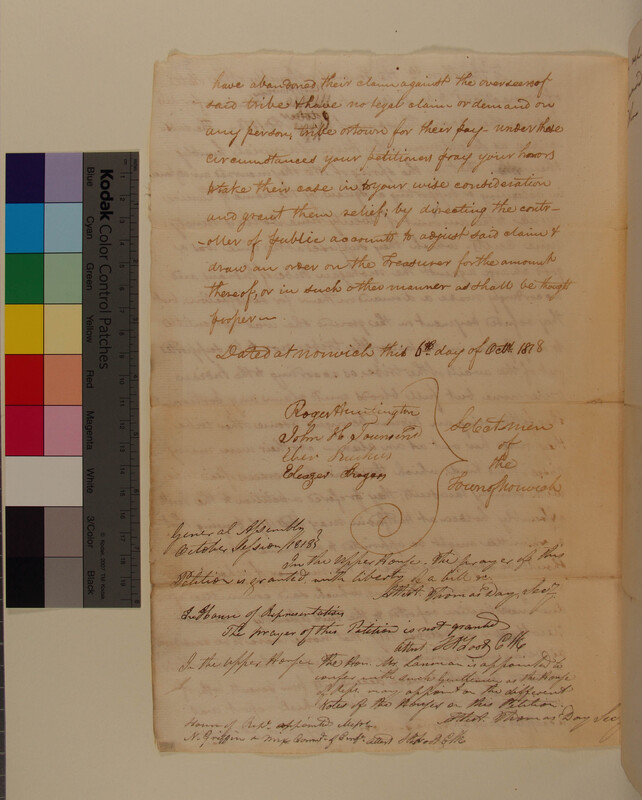 have abandoned their claim against the overseers of
said tribe & have no legal claim or demand on
any person, tribe or town for their pay - under these
circumstances your petitioners pray your honors
to take their case in to your wise consideration
and grant them relief; by directing the contr-
-oller of public accounts to adjust said claim &
draw an order on the Treasurer for the amount
thereof, or in such other manner as shall be thought
proper
Dated at norwich this 6th day of Octbr 1818
Roger Huntington
John H Townsend
Eben
Eleazer Rogers
Selectmen
of
the
Town of Norwich
General Assembly
October Session 1818
In the Upper House. The prayer of this
Petition is granted with liberty of a bill &c
Attest. Thomas Day, Secy
In House of Representatives
The prayer of this Petition is not granted
attest Clk
In the Upper House The Hon. Mr. Lanman is appointed to
confer with such Gentlemen as the House
of Reps. may appoint on the different
Votes of the Houses on this Petition.
Attest. Thomas Day Secy
House of Reps. appointed Messrs
N. Griffin a Com of Conf. attest Clk
Kodak Color Control Patches
Blue
Cyan
Green
Yellow
Red
Magenta
White
3/Color
Black